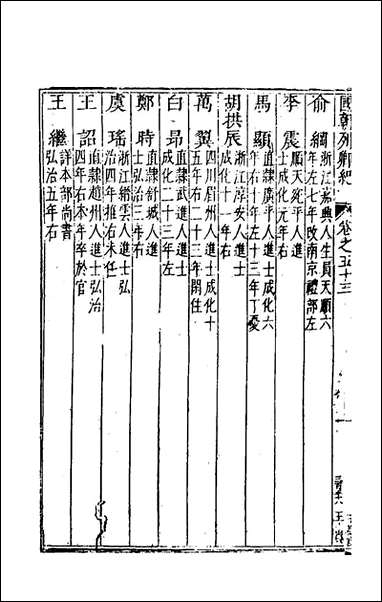 國朝列卿紀 卷之五十三
俞綱 浙江嘉興人生員天順六
年左七年改南京禮部左
李震 順天宛平人進
士成化元年右
馬顯 直隸廣平人進士成化六
年右十年左十三年丁憂
胡拱辰 浙江淳安人進士
成化十一年右
萬翼 四川眉州人進士成化十
五年右二十三年閑住
白昂 直隸武進人進士
成化二十三年左
鄭時 直隸舒城人進
士弘治三年右
虞瑤 浙江縉雲人進士弘
治四年推右未任
王詔 直隸趙州人進士弘治
四年右本年卒於官
王繼 詳本部尚書
弘治五年右